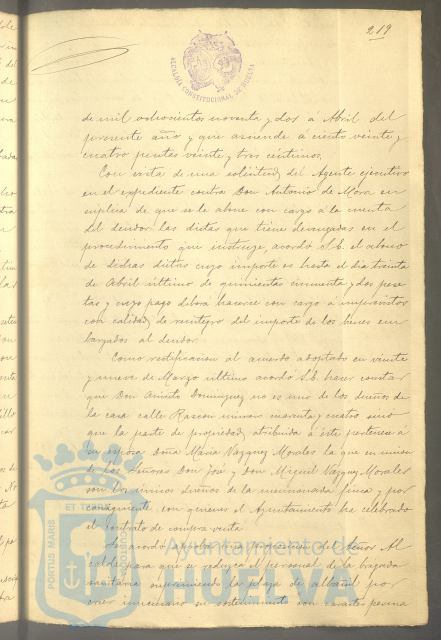 219
ALCALDÍA CONSTITUCIONAL DE HUELVA
de mil ochocientos noventa y dos a Abril del
presente año y que asciende á ciento veinte y
cuatro pesetas veinte y tres céntimos.
Con vista de una solicitud del Agente ejecutivo
en el expediente contra Don Antonio de Mora en
súplica de que se le abone con cargo á la cuenta
del deudor las dietas que tiene devengadas en el
procedimiento que instruye, acordó S.E. el abono
de dichas dietas cuyo importe es hasta el dia treinta
de Abril último de quinientas cincuenta y dos pese
tas y cuyo pago deberá hacerse con cargo a imprevistos
con calidad de reintegro del importe de los bienes em
bargados al deudor.
Como rectificacion al acuerdo adoptado en veinte
y nueve de Marzo último acordó S.E. hacer constar
que Don Aniceto Dominguez no es uno de los dueños de
la casa calle Rascon número cuarenta y cuatro sinó
que la parte de propiedad atribuida á éste pertenece á
su esposa Doña Maria Vazquez Morales la que en union
de los Señores Don José y Don Miguel Vazquez Morales
son los únicos dueños de la mencionada finca y por
consiguiente con quienes el Ayuntamiento ha celebrado
el contrato de compra venta.
Se acordó aprobar la proposicion del Señor Al
calde para que se reduzca el personal de la brigada
sanitaria suprimiendo la plaza de albañil por
creer innecesario su sostenimiento con carácter perma
PORTUS MARIS ET TERRAE CUSTODIA
Ayuntamiento de
HUELVA